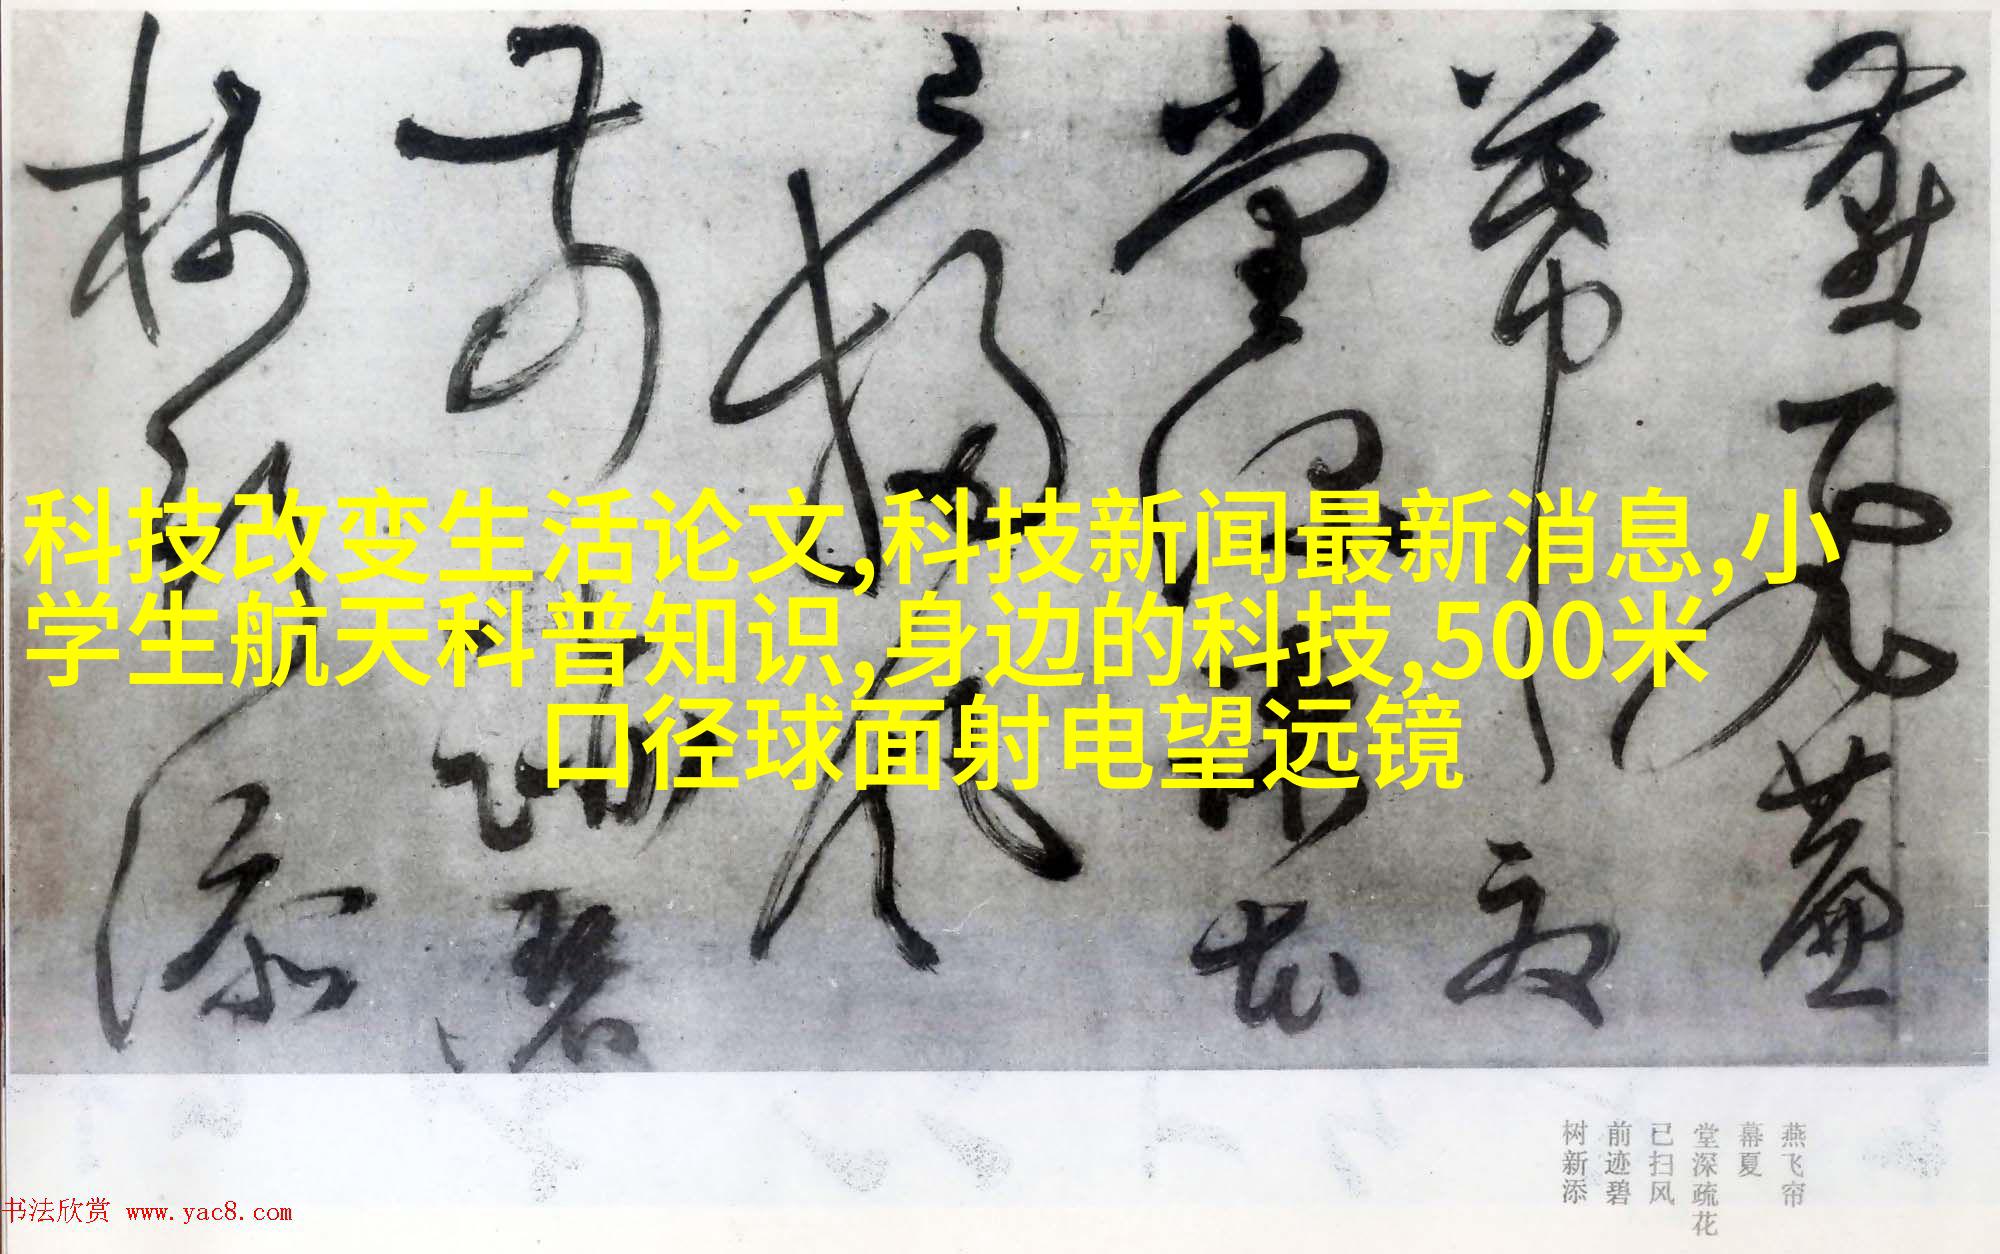 燕飞帘
幕夏
堂深疏花
已扫风
前迹碧
树新添
科技改变生活论文,科技新闻最新消息,小
学生航天科普知识,身边的科技,500米
口径球面射电望远镜
燕飞帘
幕夏
堂深疏花
已扫风
前迹碧
树新添
书法欣赏 www.yac8.com